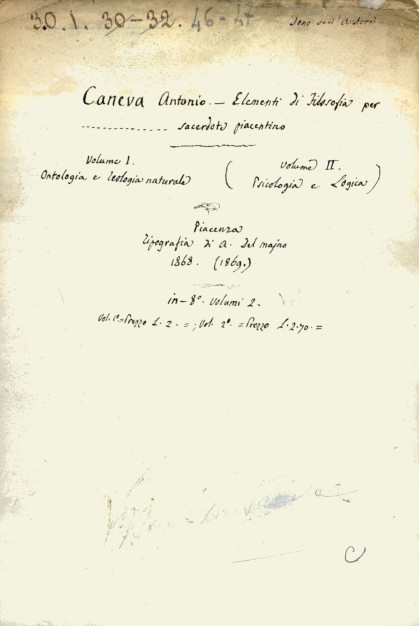 3.0.1. 30-32. 46-47
Dono dell'Autore
Caneva Antonio. — Elementi di Filosofia per
................ sacerdote piacentino
Volume I.
Ontologia e Teologia naturale
(Volume II.
Psicologia e Logica)
Piacenza
Tipografia di A. Del majno
1868. (1869.)
in-8º. Volumi 2.
Vol. 1º = Prezzo L. 2. = ; Vol. 2º. = Prezzo L. 2.70. =
C